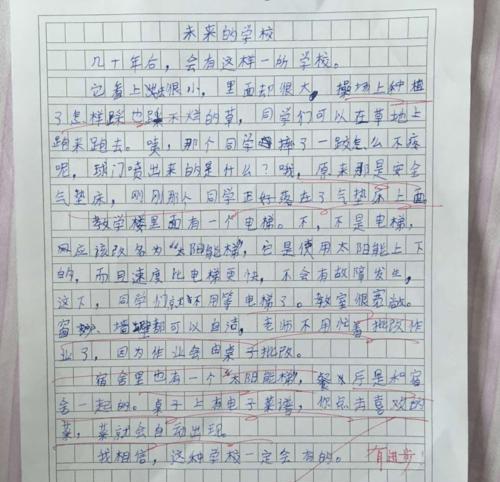 未来的学校
几十年后，会有这样一所学校。
它看上去很小，里面却很大，操场上种植
了怎样踩也踩不烂的草，同学们可以在草地上
跑来跑去。咦，那个同学摔了一跤怎么不疼
呢，球门喷出来的是什么？哦，原来那是安全
气垫床，刚刚那个同学正好落在了气垫床上面
教学楼里面有一个电梯。不，不是电梯，
应该改名为“太阳能梯”，它是使用太阳能上下
的，而且速度比电梯更快，不会有故障发生，
这下，同学们就不用等电梯了。教室很宽敞。
窗，墙壁都可以自洁，老师不用忙着批改作
业了，因为作业会由桌子批改。
宿舍里也有一个“太阳能梯”，餐厅是和宿
舍一起的。桌子上有电子菜谱，你点击喜欢的
菜，菜就会自动出现。
我相信，这种学校一定会有的。
有进步！